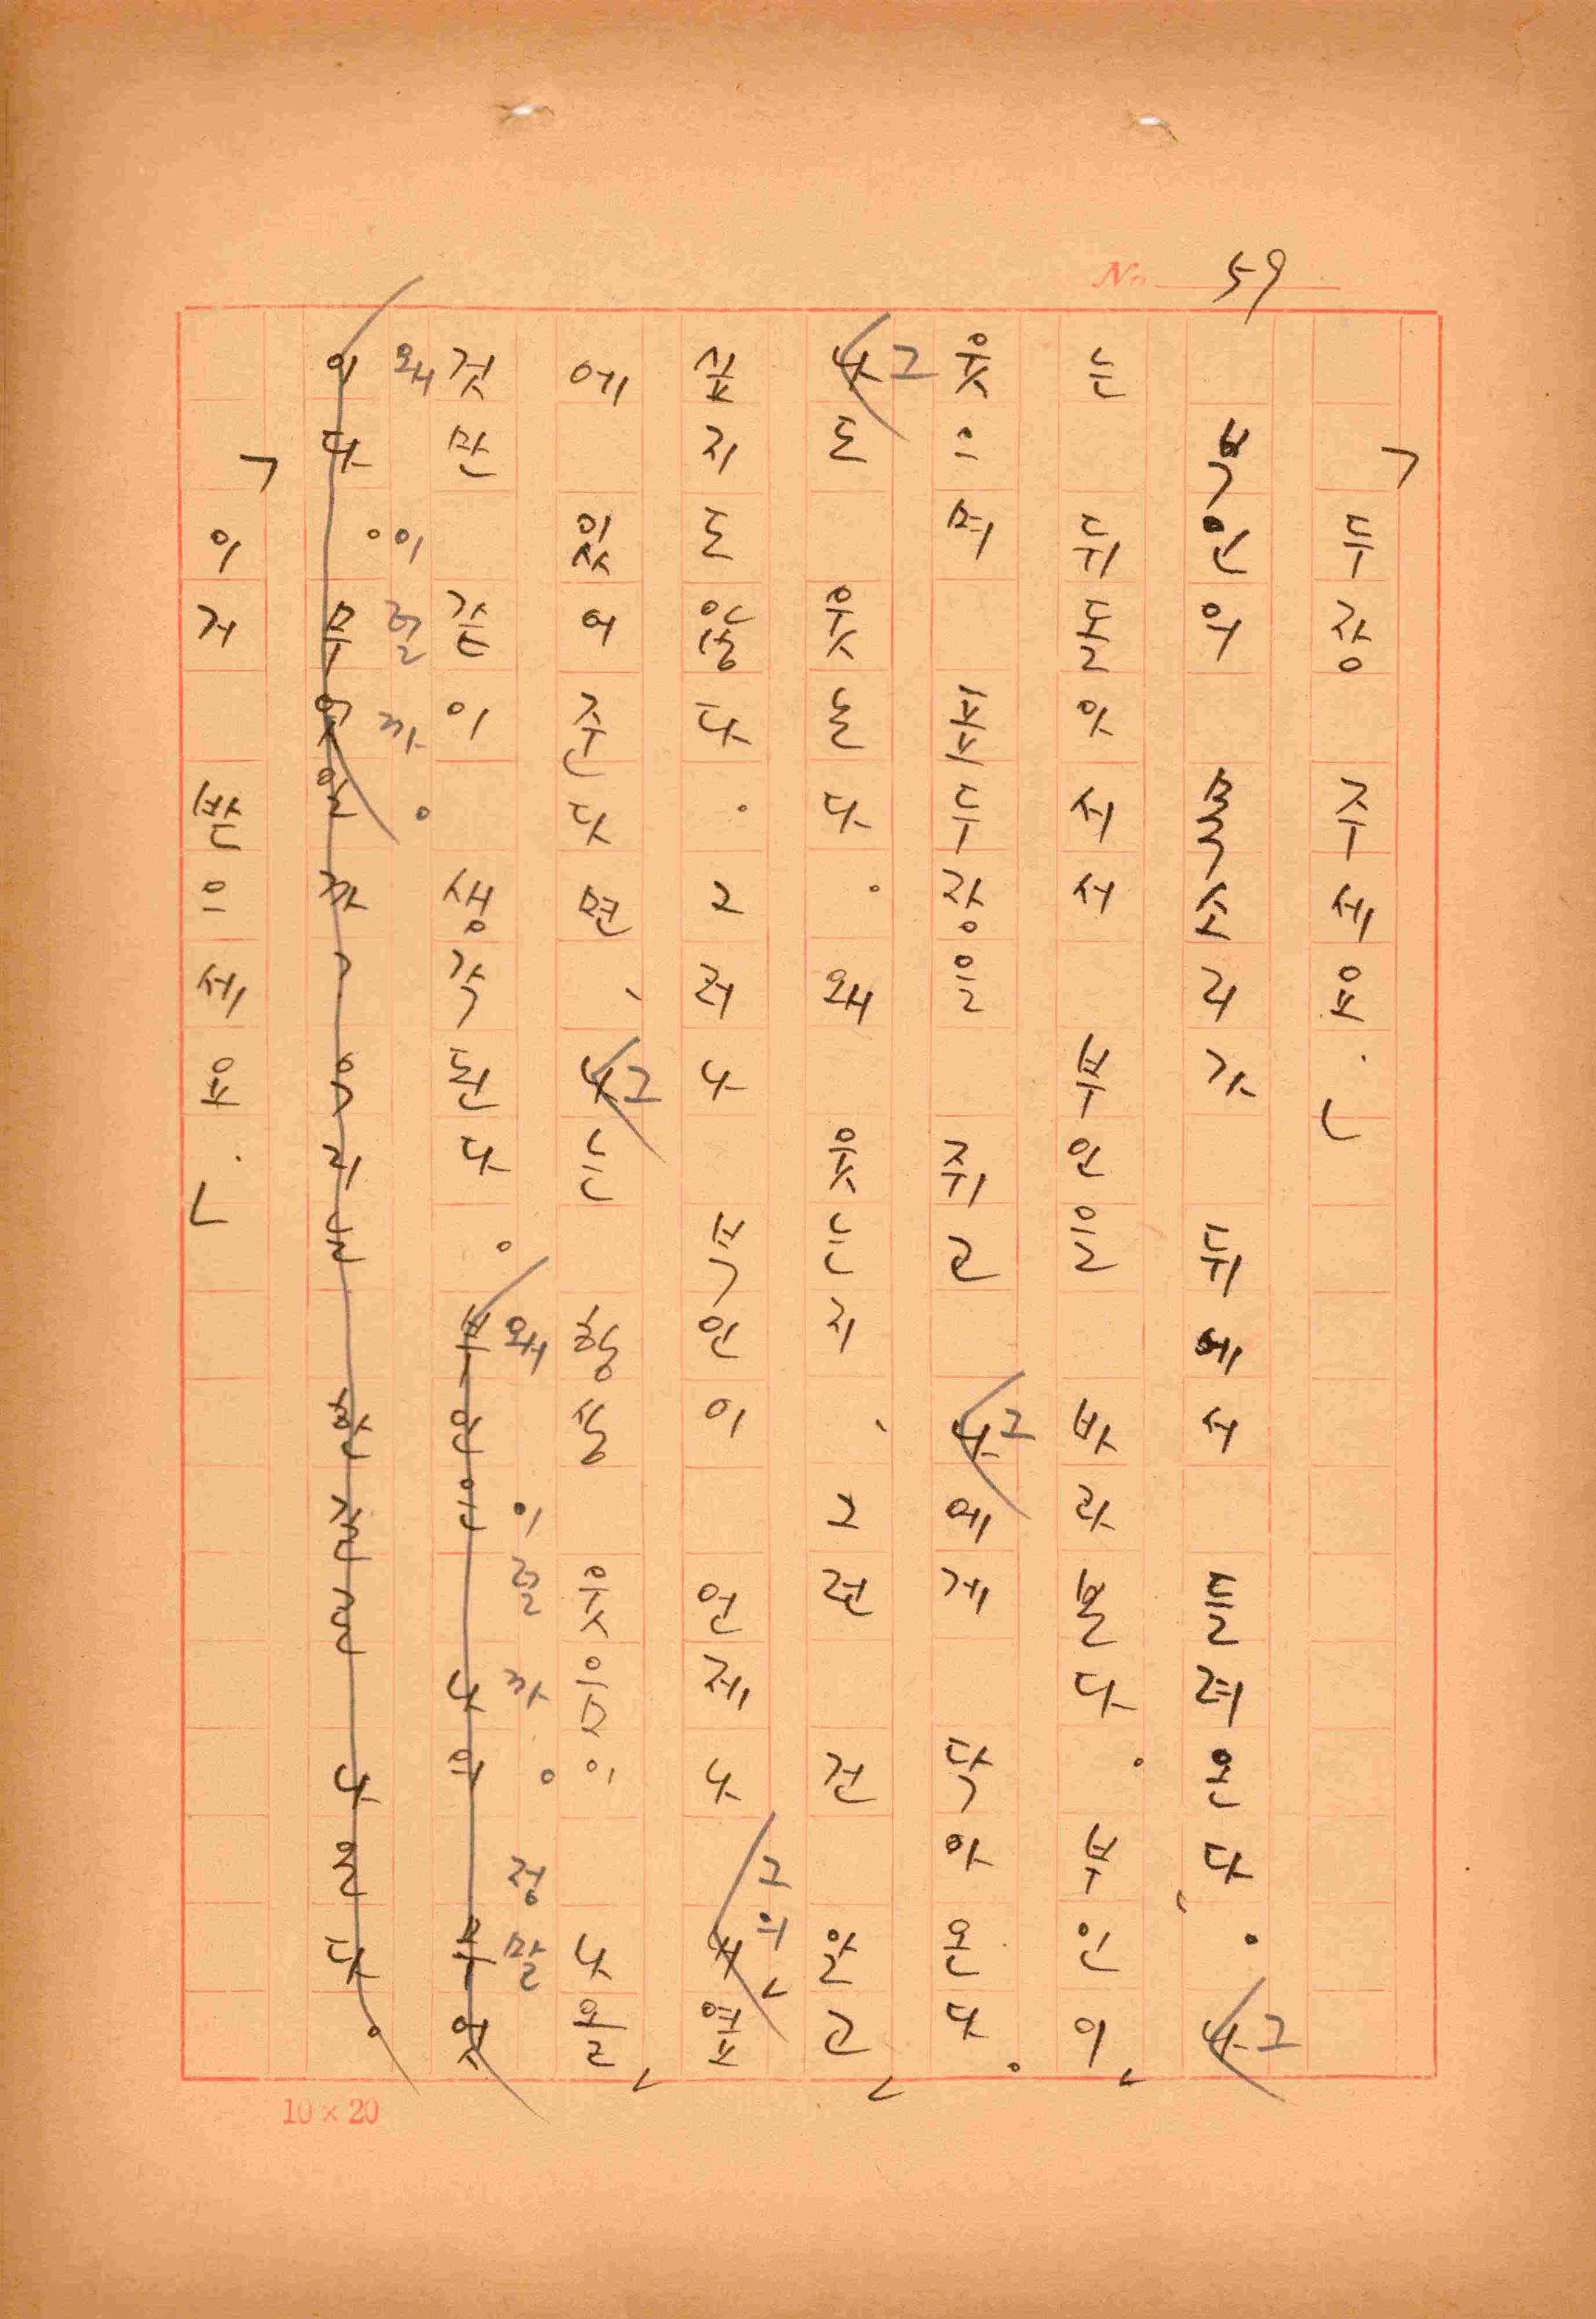 59
「두장 주세요.」
부인의 목소리가 뒤에서 들려온다. 그
는 뒤돌아서서 부인을 바라본다. 부인이
웃으며 표 두장을 쥐고 그에게 닥아온다.
그도 웃는다. 왜 웃는지, 그런건 알고
싶지도 않다. 그러나 부인이 언제나 그의 옆
에 있어준다면, 그는 항상 웃음이 나올
것만 같이 생각된다. 왜 이럴까. 정말
왜 이럴까.
「이거 받으세요.」
No
10×20